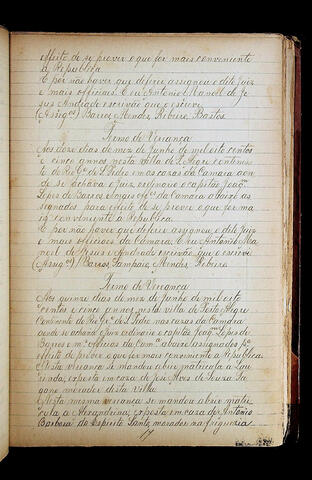 effeito de se prover o que for mais conveniente
a Republica
E por não haver que deferir assignou o dito Juiz
e mais officiaes. E eu Antonio Manoel de Je
sus Andrade escrivão que o escrevi
(Assig.os) Barros, Mendes, Ribeiro, Bastos.
Termo de Vereança
Aos doze dias do mez de Junho de mil oito centos
e cinco annos nesta Villa de P. Alegre Continente
do Rio G.e de S. Pedro em as casas da Camara aon
de se achava o Juiz ordinario o capitão Joaq.m
Lopes de Barros e mais off.es da Camara abaixo as
signados para effeito de se prover o que for ma
is conveniente á Republica.
E por não haver que deferir assignou o dito Juiz
e mais officiaes da Camara. E eu Antonio Ma
noel de Jesus e Andrade escrivão que o escrevi
(Assig.os) Barros, Sampaio, Mendes, Ribeiro
Termo de Vereança
Aos quinze dias do mez de Junho de mil oito
centos e cinco annos nesta villa de Porto Alegre
Continente do Rio Gr.e de S. Pedro nas casas da Camara
aonde se achava o Juiz ordinario o capitão Joaq.m Lopes de
Barros e m.s officiaes da Cam.ra abaixo assignados p.a
effeito de prover o que for mais conveniente á Republica.
Nesta vereança se mandou abrir matricula a
exposta em casa de José Alves de Souza
morador desta Villa
Nesta mesma vereança se mandou abrir matri
cula a Alexandrina, exposta em casa de Antonio
Barbosa do Espirito Santo, morador na freguezia